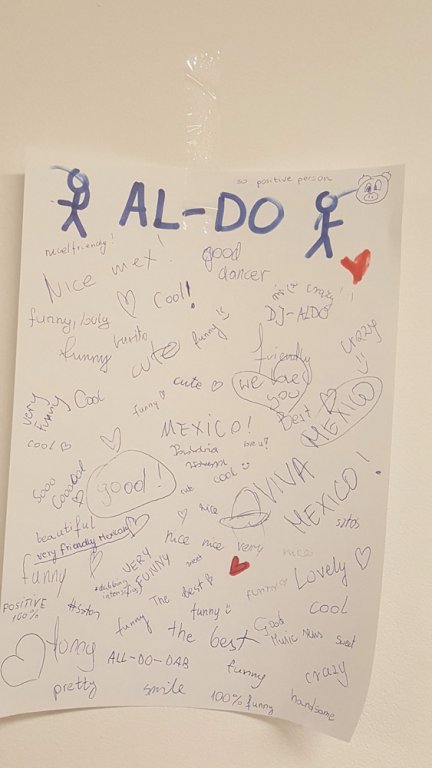 so positive person
AL-DO
Nice mex!
good
dancer
Cool!
DJ-ALDO
funny
burito
funny
cute
funny
crazy
friendly
we love
you
cute
very
funny
Cool
funny
Best
MEXICO
cool
MEXICO!
love u?
sooo
good!
cool
cute
nice
VIVA
MEXICO!
beautiful
very friendly Mexican
nice
nice
very
nice
funny
VERY
FUNNY
sweet
#dabbing
intensifies
The best
funny
Lovely
POSITIVE
100%
funny
funny
cool
the best
Good
Music
sweet
ALL-DO-DAB
funny
crazy
pretty
smile
100% funny
handsome